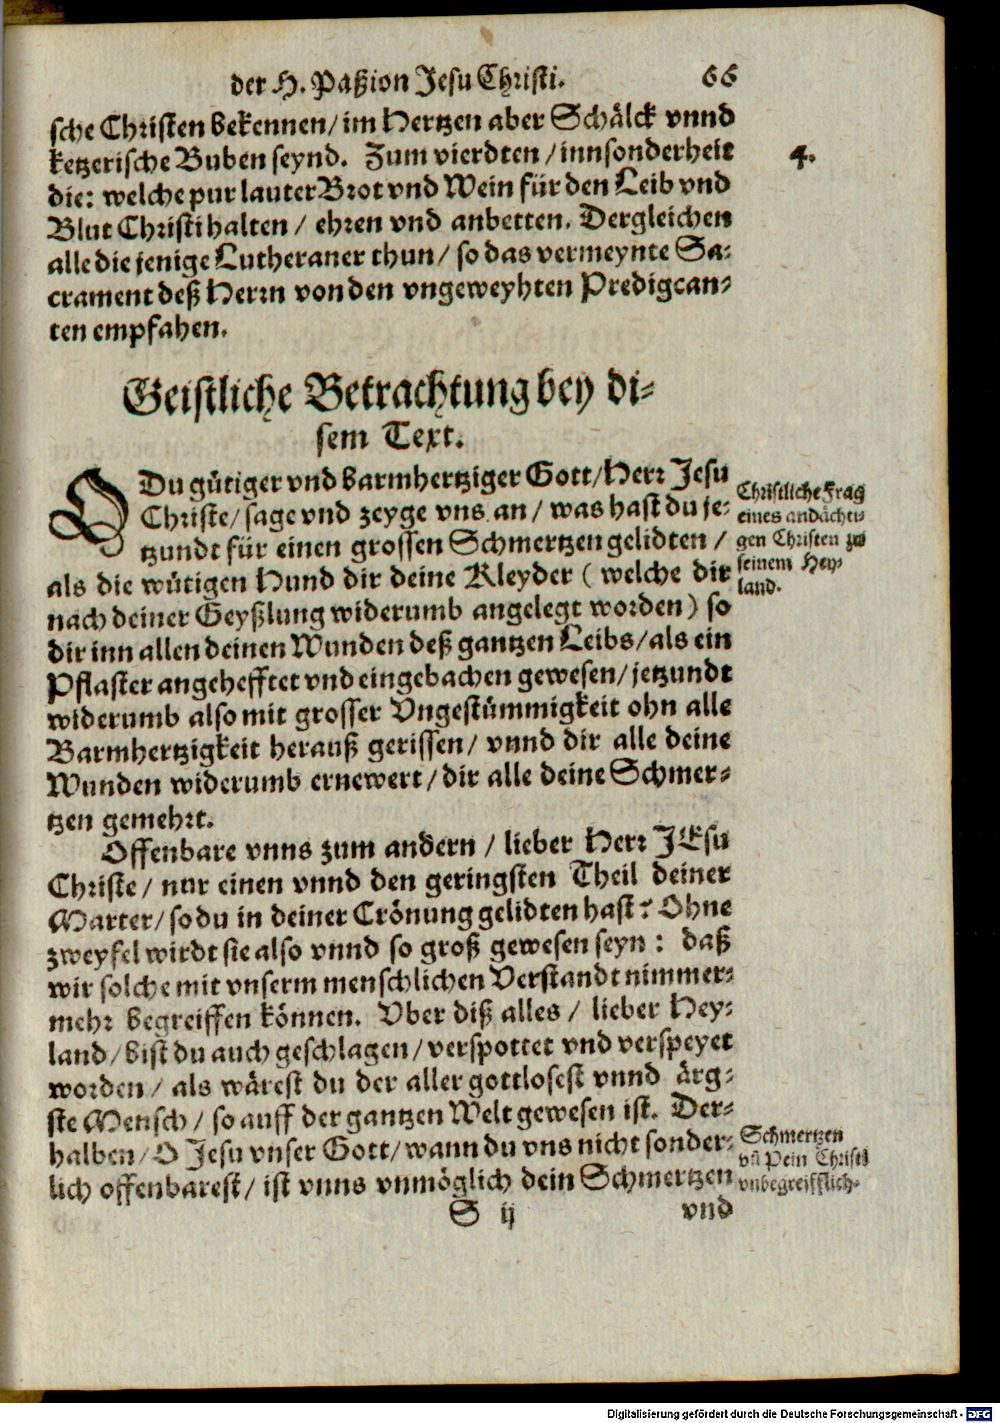 der H. Paßion Jesu Christi. 66
sche Christen bekennen/ im Hertzen aber Schälck vnnd
ketzerische Buben seynd. Zum vierdten / innsonderheit
4.
die: welche pur lauter Brot vnd Wein für den Leib vnd
Blut Christi halten / ehren vnd anbetten. Dergleichen
alle die jenige Lutheraner thun/ so das vermeynte Sa-
crament deß Herrn von den vngeweyhten Predigcan-
ten empfahen.
Geistliche Betrachtung bey di-
sem Text.
O Du gütiger vnd barmhertziger Gott/ Herr Jesu
Christe/ sage vnd zeyge vns an / was hast du je-
tzundt für einen grossen Schmertzen gelidten /
als die wütigen Hund dir deine Kleyder ( welche dir
nach deiner Geyßlung widerumb angelegt worden) so
dir inn allen deinen Wunden deß gantzen Leibs/ als ein
Pflaster angehefftet vnd eingebachen gewesen/ jetzundt
widerumb also mit grosser Vngestümmigkeit ohn alle
Barmhertzigkeit herauß gerissen/ vnnd dir alle deine
Wunden widerumb ernewert/ dir alle deine Schmer-
tzen gemehrt.
Christliche Frag
eines andächti-
gen Christen zu
seinem Hey-
land.
Offenbare vnns zum andern / lieber Herr JEsu
Christe/ nur einen vnnd den geringsten Theil deiner
Marter/ so du in deiner Crönung gelidten hast? Ohne
zweyfel wirdt sie also vnnd so groß gewesen seyn: daß
wir solche mit vnserm menschlichen Verstandt nimmer-
mehr begreiffen können. Vber diß alles / lieber Hey-
land/ bist du auch geschlagen/ verspottet vnd verspeyet
worden/ als wärest du der aller gottlosest vnnd ärg-
ste Mensch/ so auff der gantzen Welt gewesen ist. Der-
halben/ O Jesu vnser Gott/ wann du vns nicht sonder-
lich offenbarest/ ist vnns vnmöglich dein Schmertzen
Schmertzen
vn̄ Pein Christi
vnbegreifflich.
S ij vnd
Digitalisierung gefördert durch die Deutsche Forschungsgemeinschaft - DFG